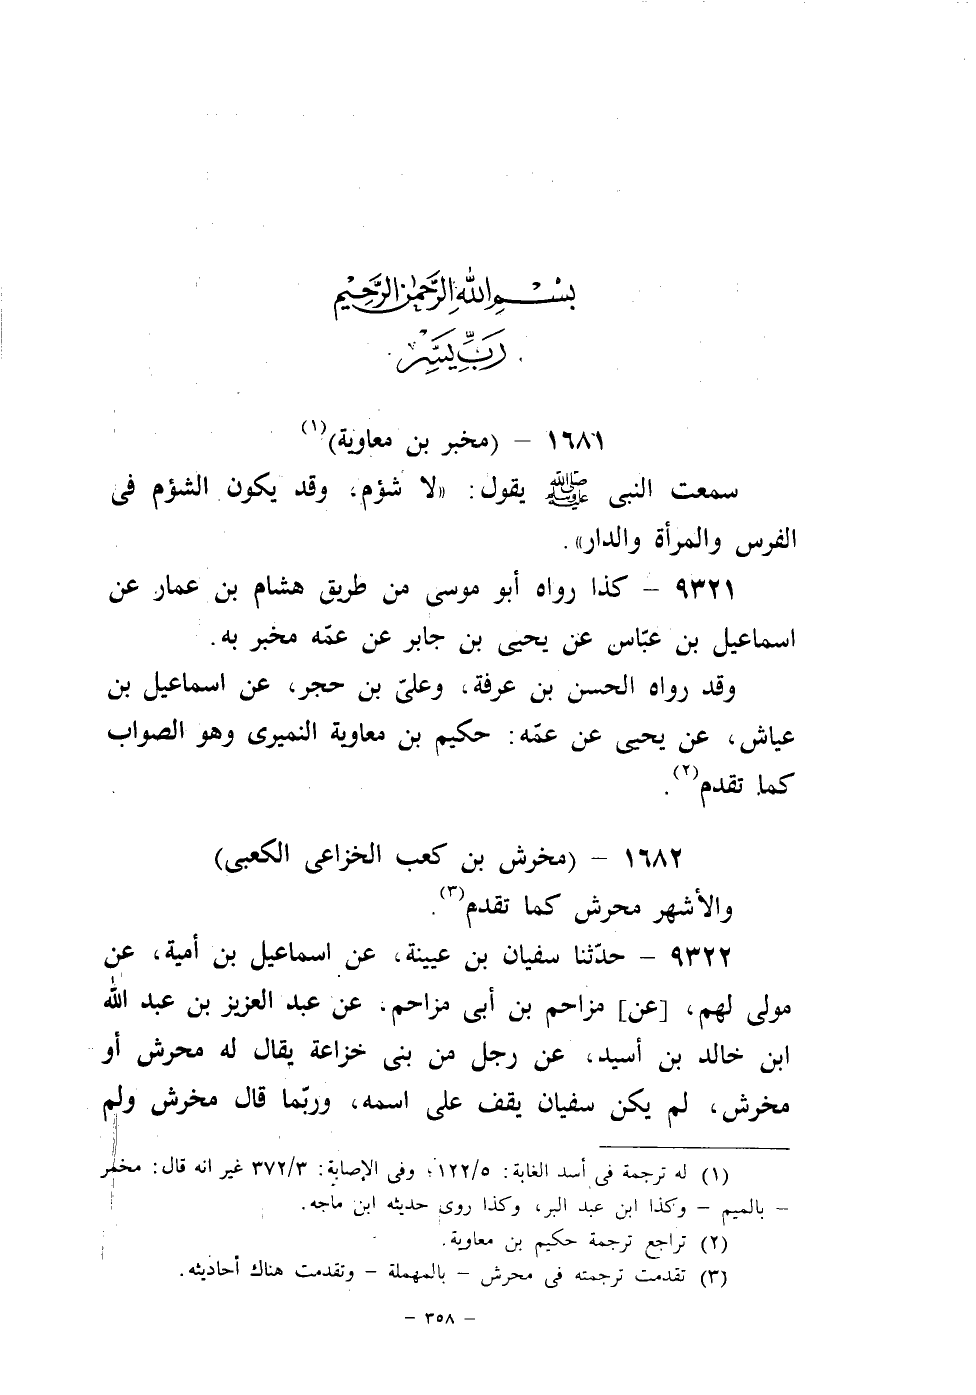 بسم الله الرحمن الرحيم
رب يسر
١٦٨١ – (مخبر بن معاوية)(١)
سمعت النبى ﷺ يقول: «لا شؤم، وقد يكون الشؤم فى
الفرس والمرأة والدار».
٩٣٢١ – كذا رواه أبو موسى من طريق هشام بن عمار عن
اسماعيل بن عبّاس عن يحيى بن جابر عن عمّه مخبر به.
وقد رواه الحسن بن عرفة، وعلىّ بن حجر، عن اسماعيل بن
عياش، عن يحيى عن عمّه: حكيم بن معاوية النميرى وهو الصواب
كما تقدم(٢).
١٦٨٢ – (مخرش بن كعب الخزاعى الكعبى)
والأشهر محرش كما تقدم(٣).
٩٣٢٢ – حدّثنا سفيان بن عيينة، عن اسماعيل بن أمية، عن
مولى لهم، [عن] مزاحم بن أبى مزاحم. عن عبد العزيز بن عبد الله
ابن خالد بن أسيد، عن رجل من بنى خزاعة يقال له محرش أو
مخرش، لم يكن سفيان يقف على اسمه، وربّما قال مخرش ولم
(١) له ترجمة فى أسد الغابة: ١٢٢/٥؛ وفى الإصابة: ٣٧٢/٣ غير انه قال: مخمر
– بالميم – وكذا ابن عبد البر، وكذا روى حديثه ابن ماجه.
(٢) تراجع ترجمة حكيم بن معاوية.
(٣) تقدمت ترجمته فى محرش – بالمهملة – وتقدمت هناك أحاديثه.
– ٣٥٨ –